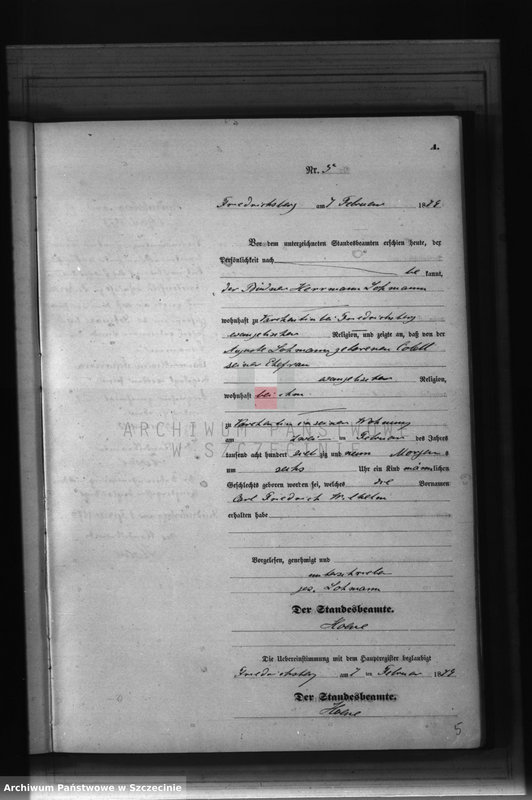 A.
Nr. 5
Friedrichsberg am 7 Februar 1889
Vor dem unterzeichneten Standesbeamten erschien heute, der
Persönlichkeit nach
be kannt,
der Büdner Herrmann Lohmann
wohnhaft zu bei Friedrichsberg
evangelischer Religion, und zeigte an, daß von der
Auguste Lohmann geborenen
seiner Ehefrau
evangelischer Religion,
wohnhaft bei ihm
zu in seiner Wohnung
am zwei ten Februar des Jahres
tausend acht hundert acht zig und neun Morgens
um sechs Uhr ein Kind männlichen
Geschlechts geboren worden sei, welches die Vornamen
Carl Friedrich Wilhelm
erhalten habe
Vorgelesen, genehmigt und
unterschrieben
gez. Lohmann
Der Standesbeamte.
Die Uebereinstimmung mit dem Hauptregister beglaubigt
Friedrichsberg am 7 ten Februar 1889
Der Standesbeamte.
5
ARCHIWUM PAŃSTWOWE
W SZCZECINIE
Archiwum Państwowe w Szczecinie